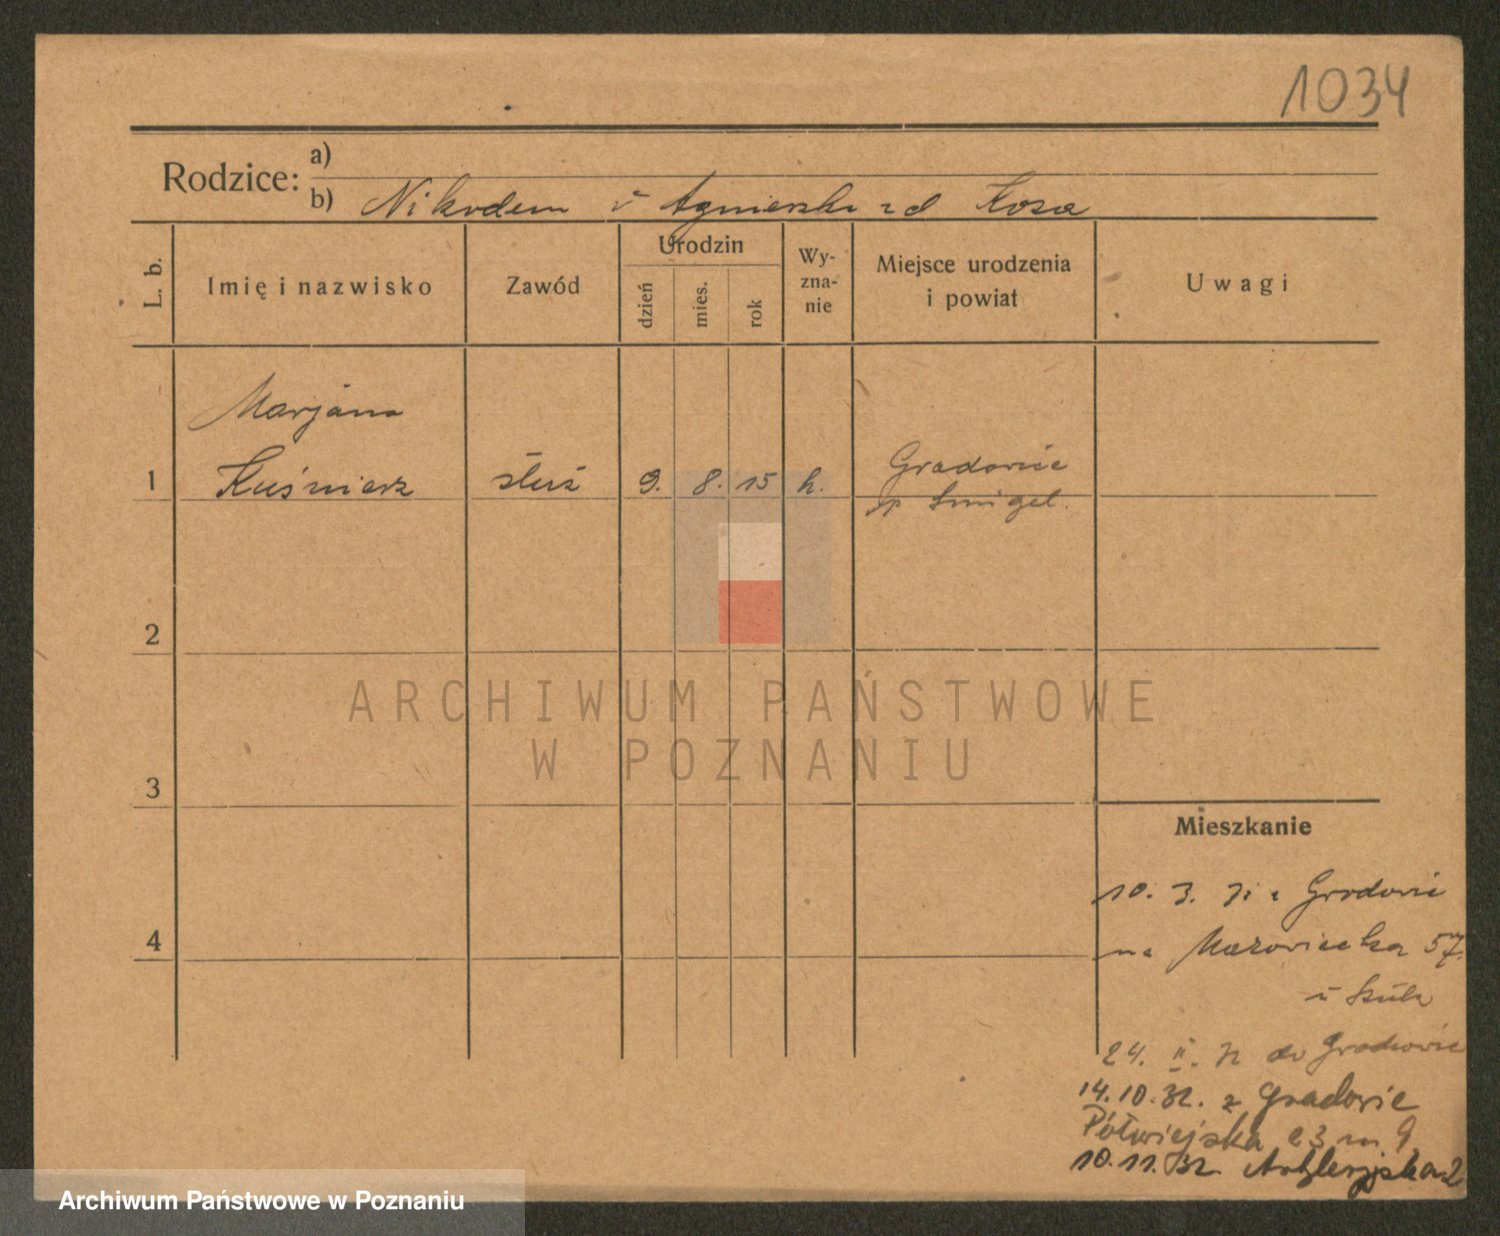 1034
Rodzice: a)
b) Nikodem i Agnieszka z d Kosa
L. b.
Imię i nazwisko
Zawód
Urodzin
dzień
mies.
rok
Wy-
zna-
nie
Miejsce urodzenia
i powiat
Uwagi
Marjana
1 Kuśnierz służ 9. 8. 15 k. Gradowice
p Śmigel.
2
3
4
ARCHIWUM PAŃSTWOWE
W POZNANIU
Mieszkanie
10. 3. 31 z Gradowic
na Mazowiecka 57.
u
24. II. 32 do Gradowic
14.10.32. z Gradowic
Półwiejska 23 m 9
10.11.32 Artyleryjska 2
Archiwum Państwowe w Poznaniu